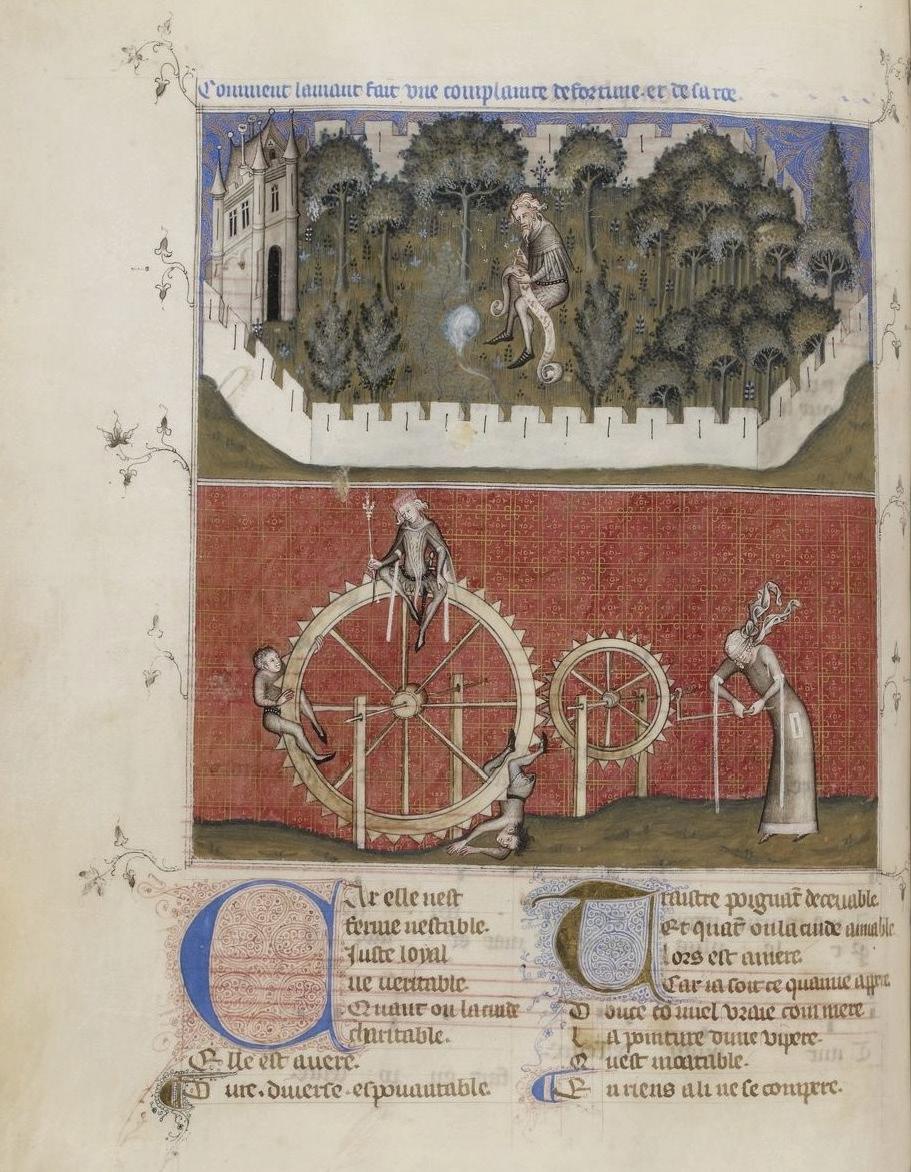 Comment lamant fait vne complainte de fortune. et de sa roe.
Car elle nest
ferme nestable.
Juste loyal
ne veritable.
Quant on la cuide
charitable.
Elle est auere.
Dure. diuerse. espouantable.
Traistre poignāt deceuable.
Et quāt on la cuide amiable
Lors est amere.
Car ia soit ce quamie appere
Douce co miel vraie com mere
La pointure dune vipere.
Quest incurable.
En riens a li ne se compere.